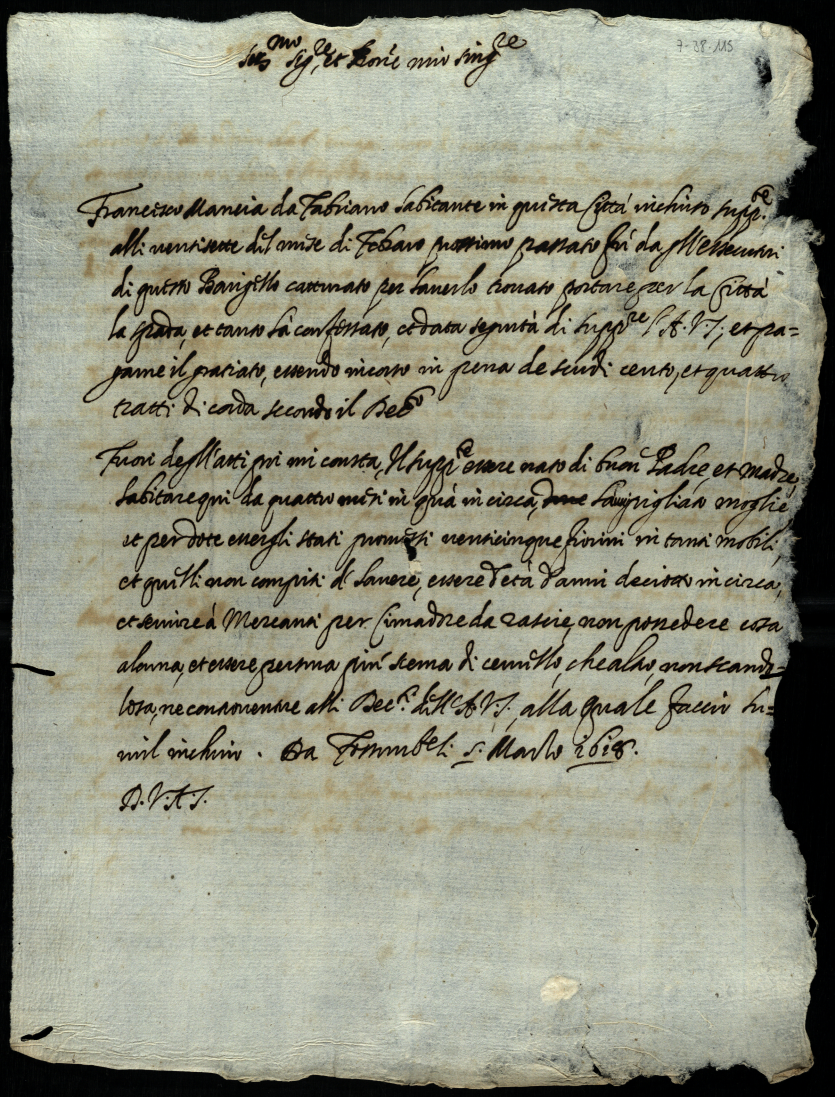 7-38-115
Ser.mo Sig.re et Prone mio sing.re
Francesco Mancia da Fabriano habitante in questa Città inchiuso supp.te
alli ventisette dil mese di Febraro prossimo passato fù da gl'essecutori
di questo Barigello catturato per haverlo trovato portare per la Città
la spada, et tanto hà confessato, et data segurtà di supp.re l'A.V.S., et pa=
game il gratiato, essendo incorso in pena de scudi cento, et quattro
tratti di corda secondo il Dec.to
Fuori degl'atti poi mi consta, Il supp.te essere nato di buon Padre, et Madre,
habitare qui da quattro mesi in quà in circa, haver pigliato moglie
et per dote essergli stati promessi venticinque fiorini in tanti mobili,
et quelli non compiti d'havere, essere d'età d'anni deciotto in circa,
et servire à Mercanti per Cimadore da rascie, non possedere cosa
alcuna, et essere persona più scema di cervello, che altro, non scanda=
losa, ne contraventore alli Dec.ti dell'A.V.S., alla quale faccio hu=
mil inchino. Da Fossomb.e li 5. Marzo 1618.
D.V.A.S.